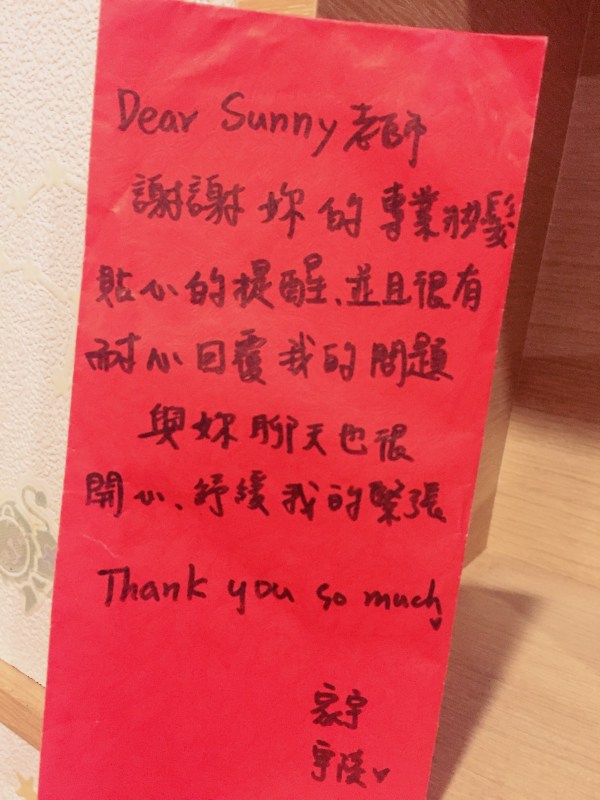 Dear Sunny 老師
謝謝妳的專業妝髮
貼心的提醒、並且很有
耐心回覆我的問題
與妳聊天也很
開心、紓緩我的緊張
Thank you so much
家宇
宇陵